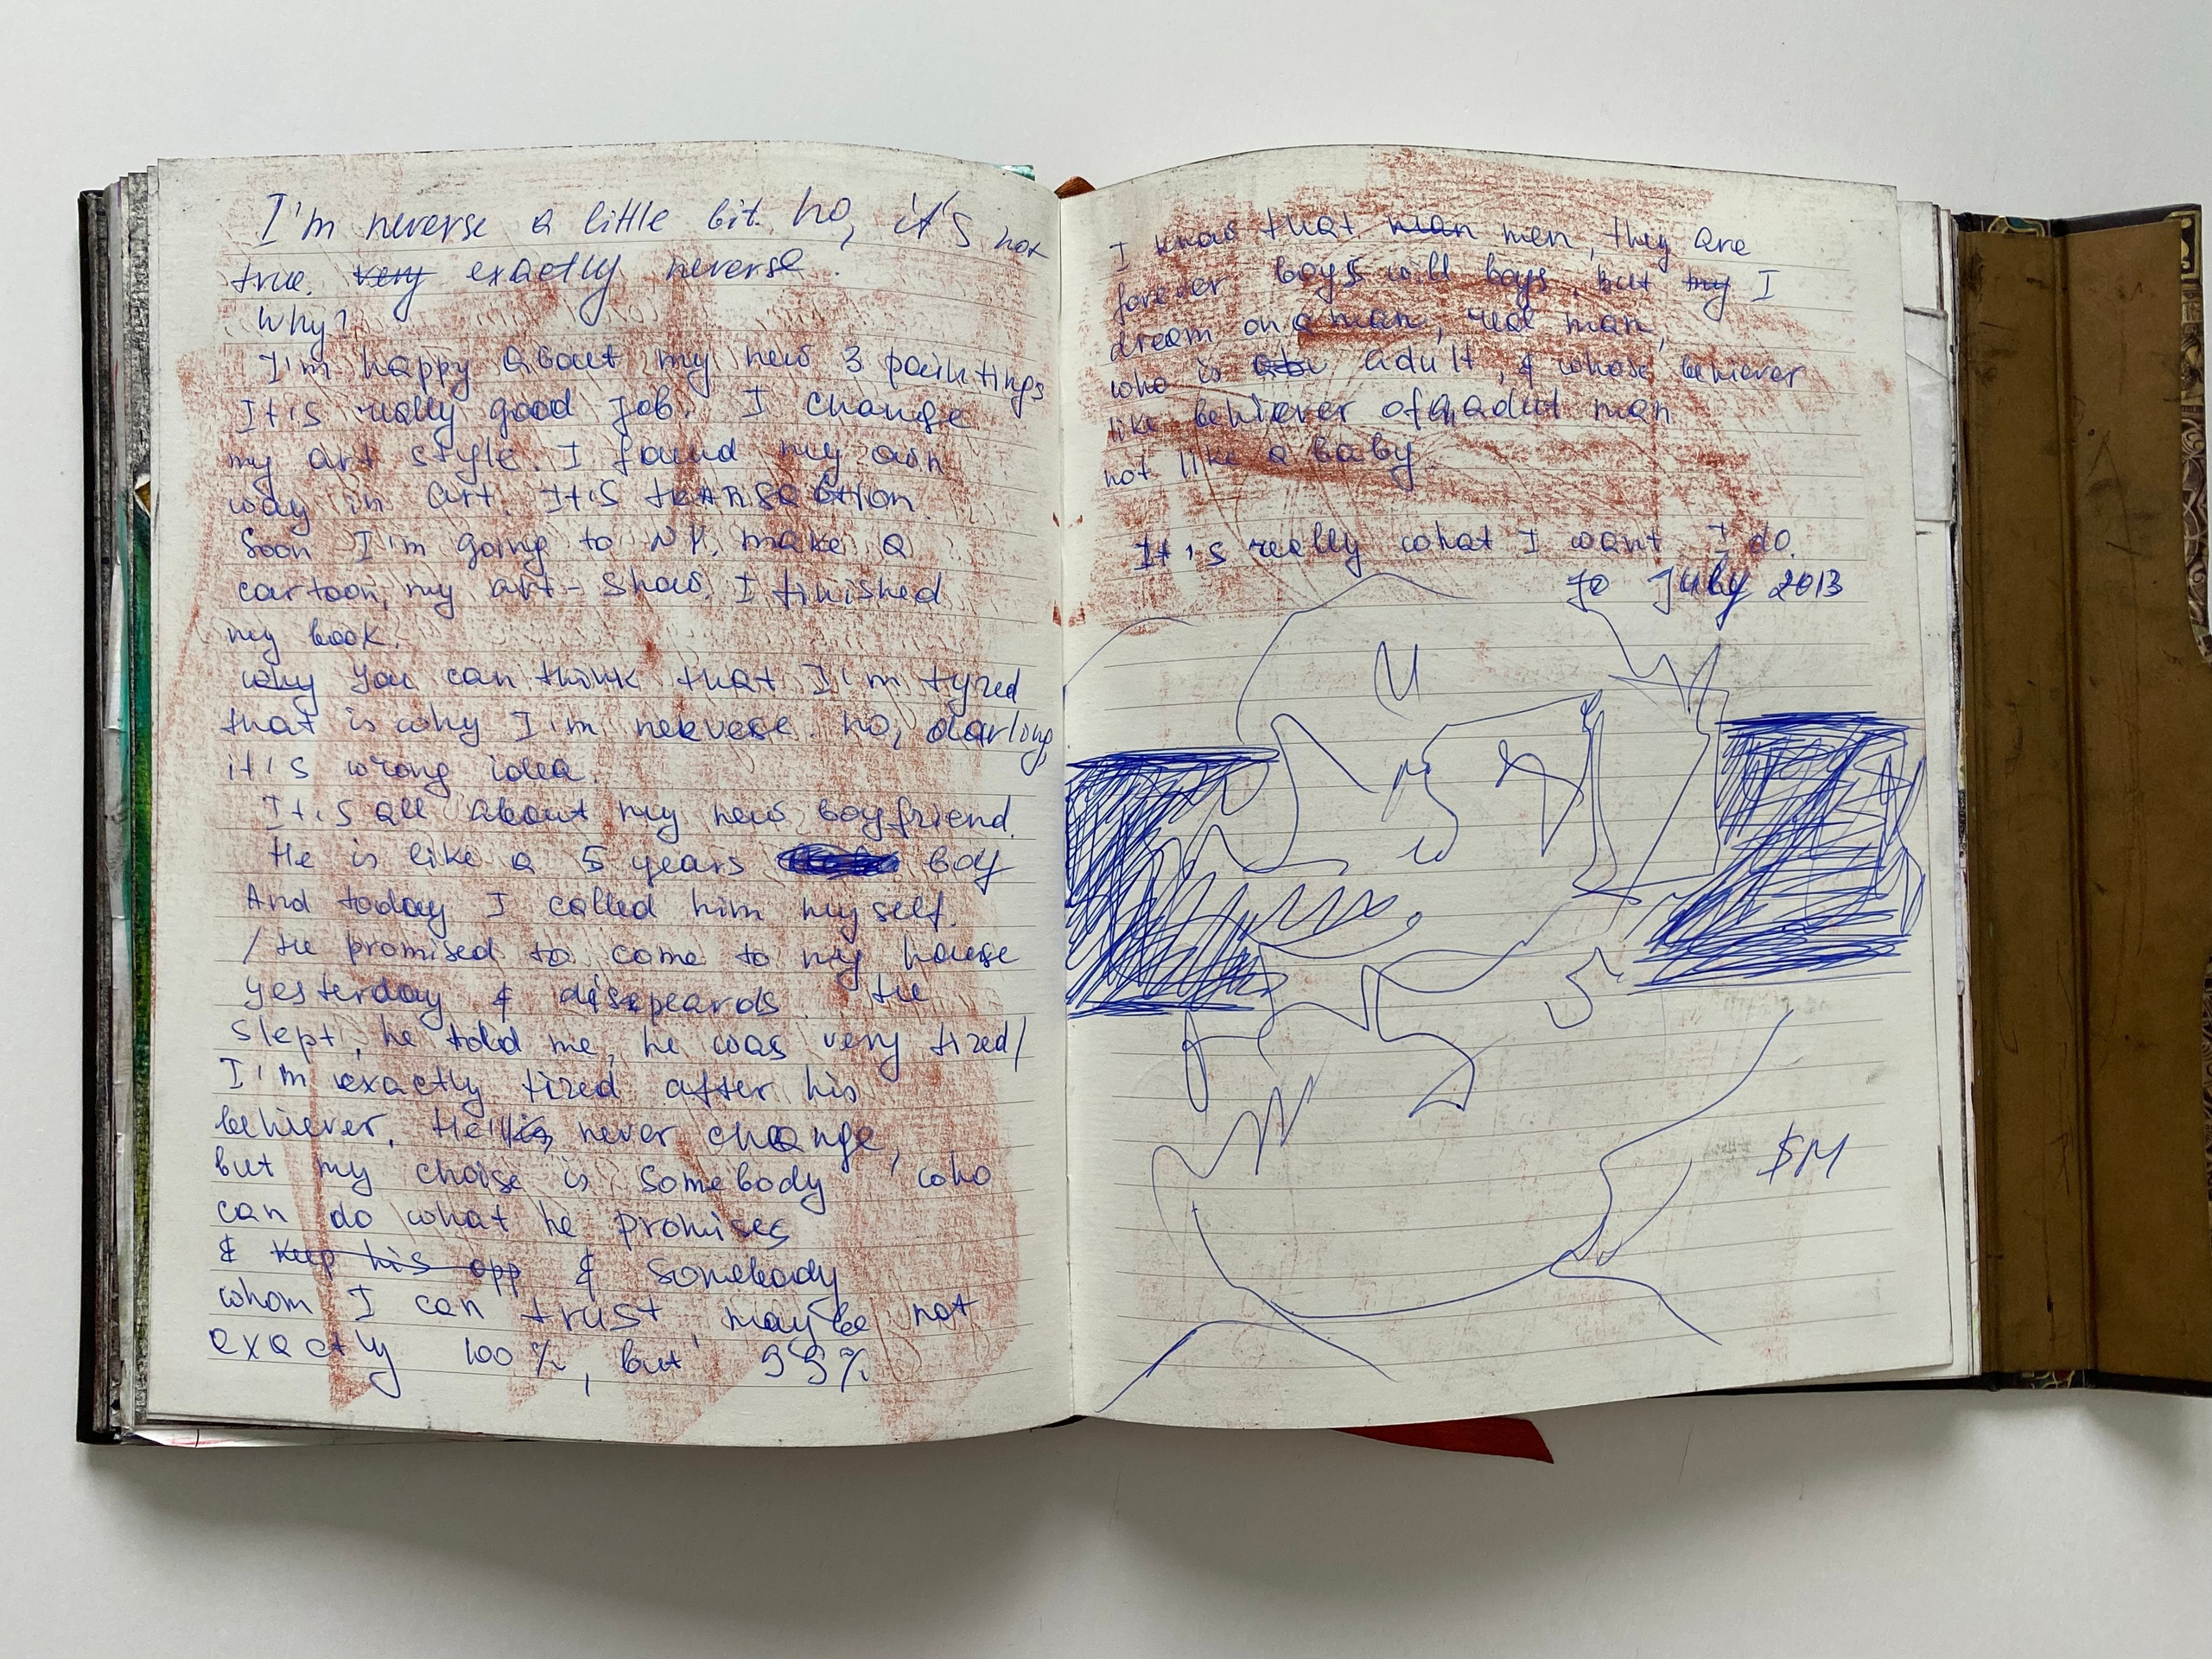 I'm nerverse a little bit. no, it's not
true. very exactly nerverse.
Why?
I'm happy about my new 3 paintings
It's really good job. I change
my art style. I found my own
way in art. It's transaction.
Soon I'm going to NY, make a
cartoon, my art-show. I finished
my book.
why you can think that I'm tyred
that is why I'm nervese. no, darling,
it's wrong idea.
It's all about my new boyfriend.
He is like a 5 years boy
And today I called him myself.
/He promised to come to my house
yesterday & disapeards. He
slept, he told me, he was very tired/
I'm exactly tired after his
behiever. He'll never change,
but my choise is somebody, who
can do what he promises
& keep his opp & somebody
whom I can trust, maybe not
exactly 100%, but 99%
I know that man men, they are
forever boys will boys, but my I
dream on a man, real man,
who is adult, & whose behiever
like behiever of a adult man
not like a baby.
It's really what I want. I do.
July 2013
$M